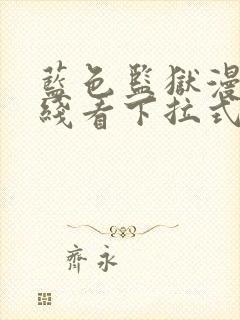 藍色監獄漫
綫看下拉式
齊永